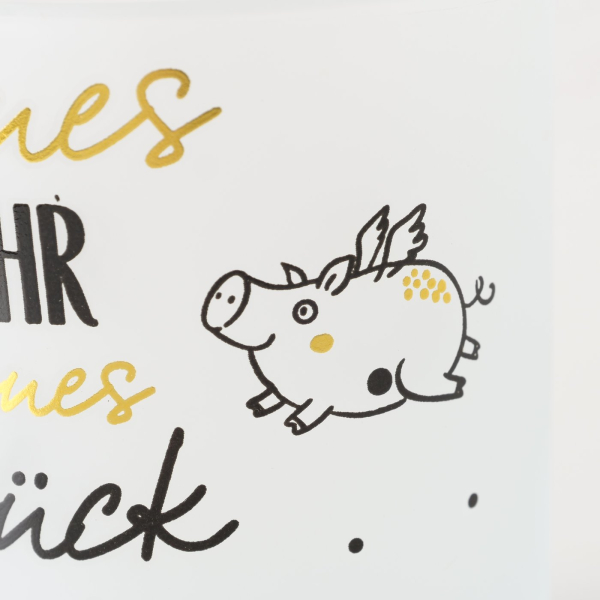 ues
HR
ues
ück